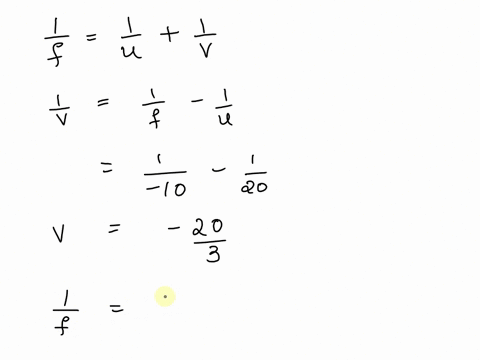 1/f = 1/u + 1/v
1/v = 1/f - 1/u
= 1/-10 - 1/20
v = -20/3
1/f =